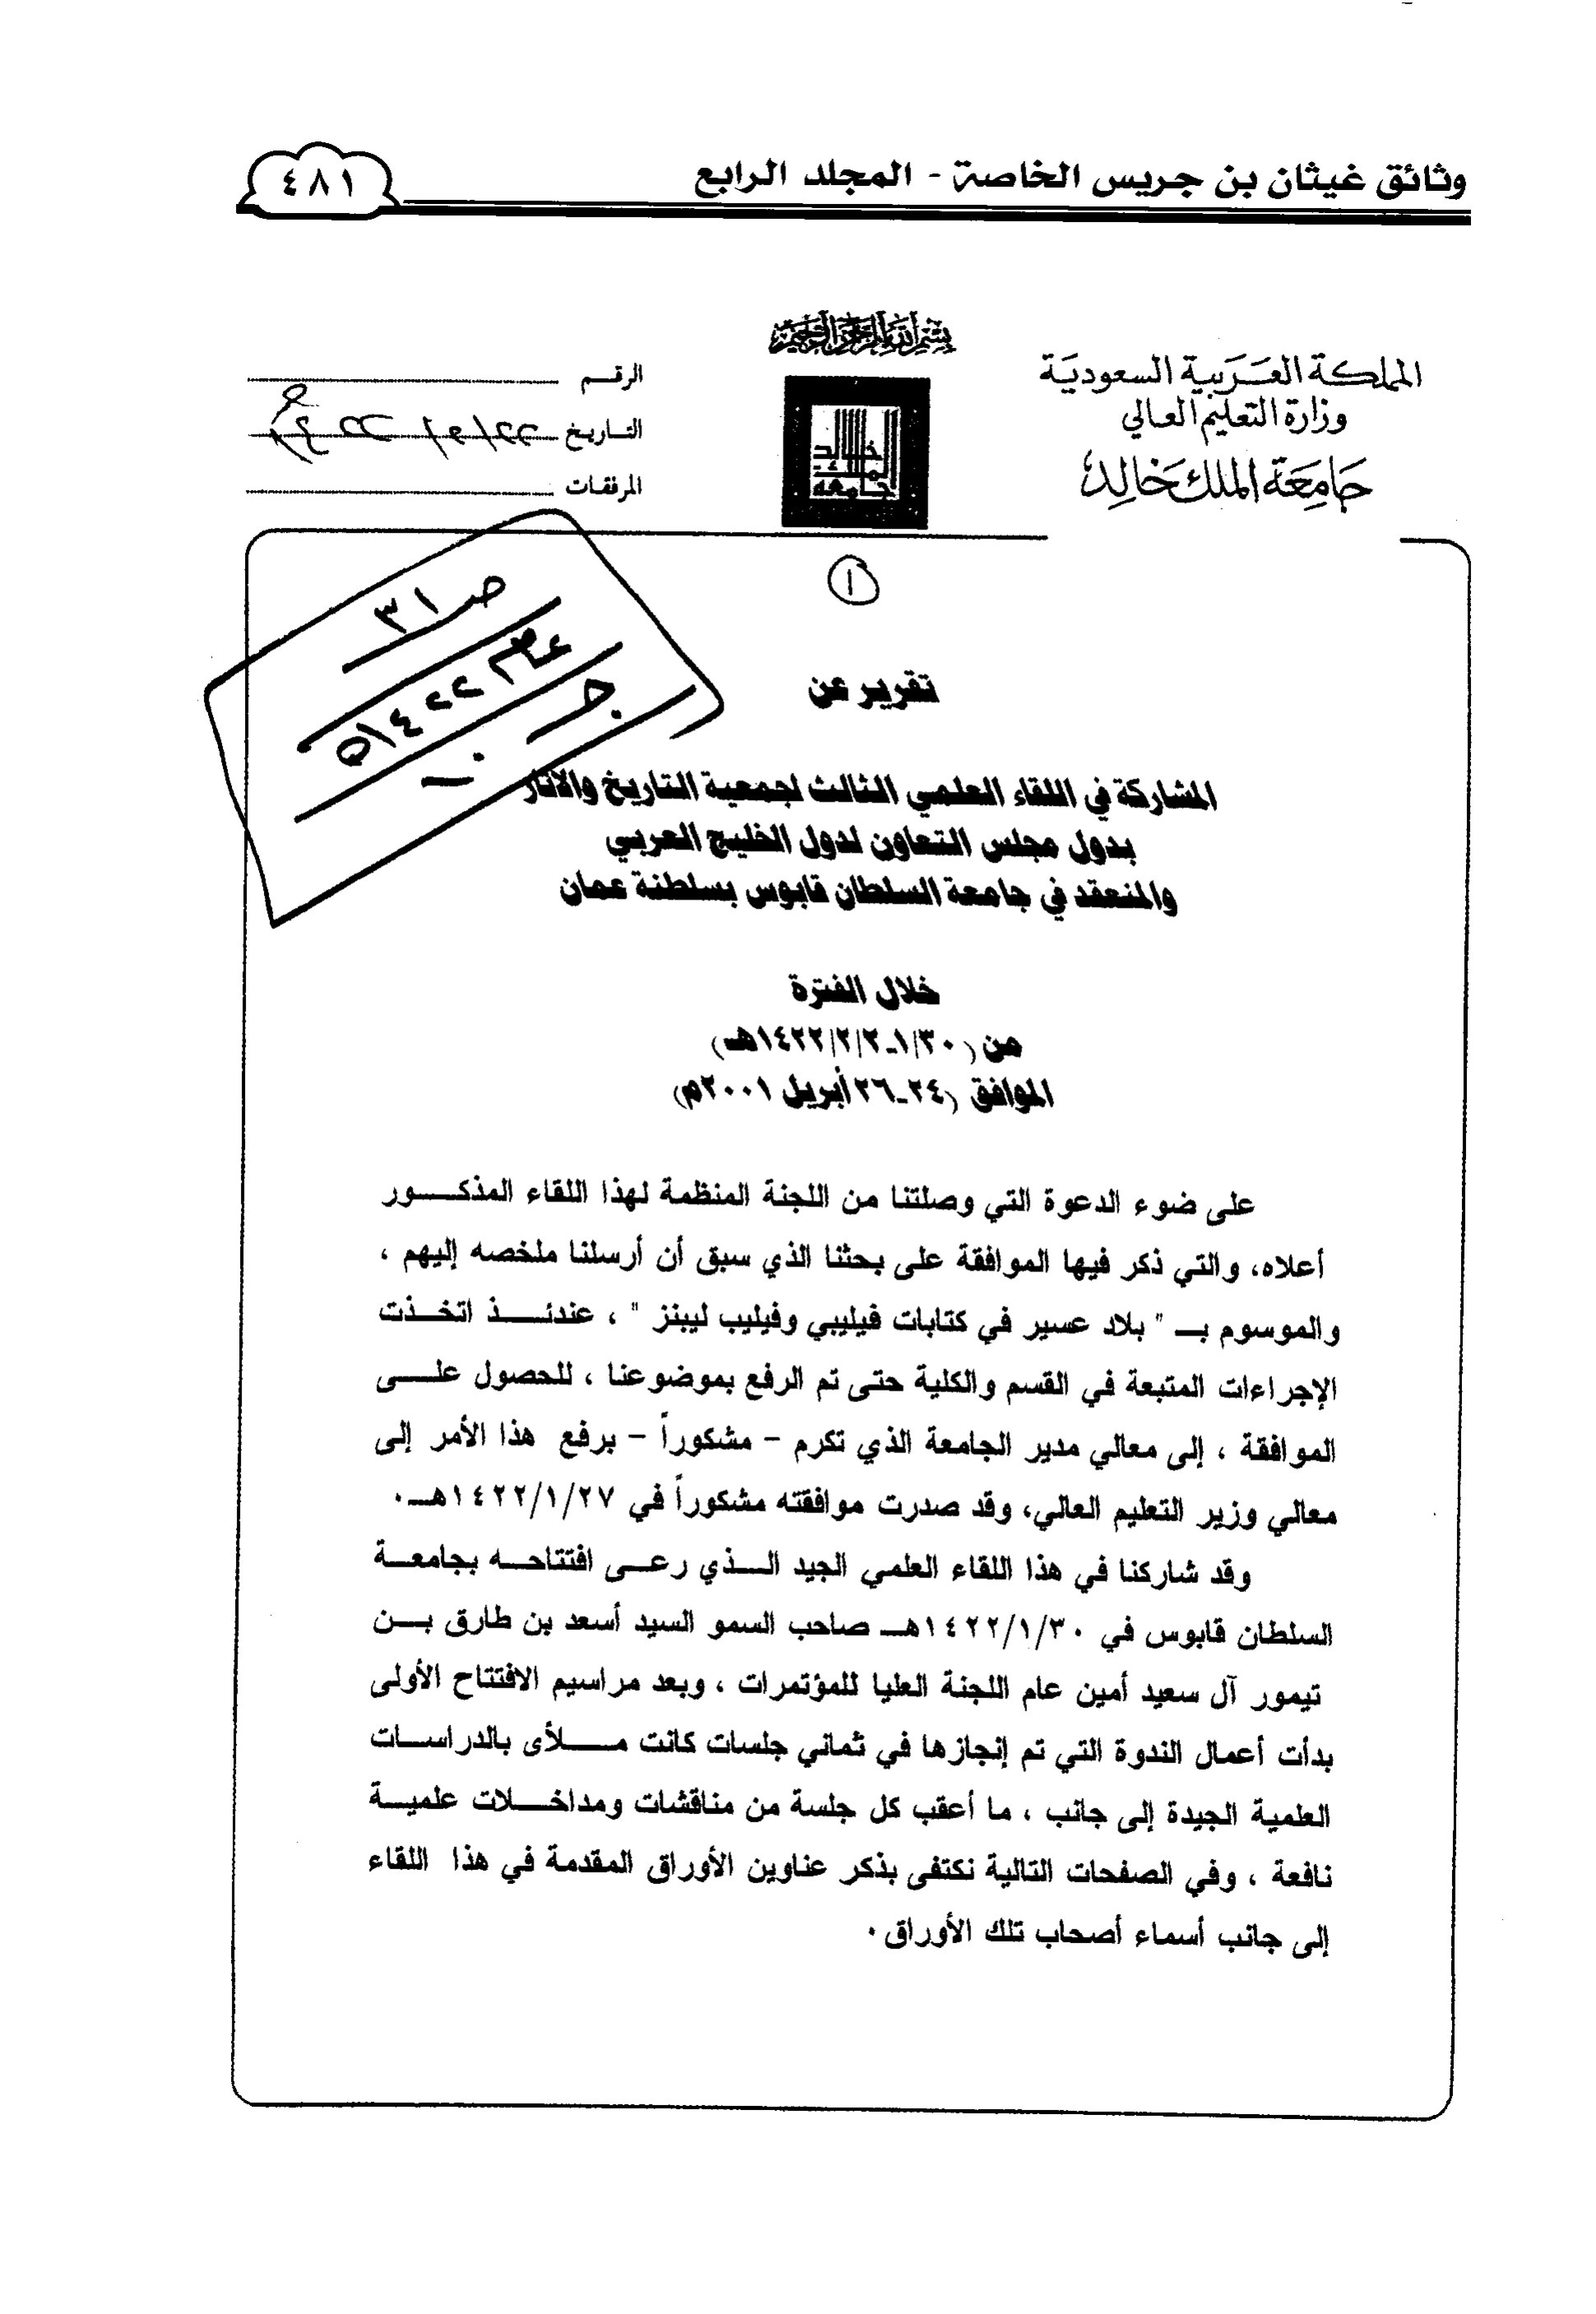 وثائق غيثان بن جريس الخاصة - المجلد الرابع
٤٨١
بسم الله الرحمن الرحيم
المملكة العربية السعودية
وزارة التعليم العالي
جامعة الملك خالد
جامعة الملك خالد
الرقم
التاريخ
المرفقات
١
ص ٣١
عام ١٤٢٢هـ
جـ ١٠
تقرير عن
المشاركة في اللقاء العلمي الثالث لجمعية التاريخ والآثار
بدول مجلس التعاون لدول الخليج العربي
والمنعقد في جامعة السلطان قابوس بسلطنة عمان
خلال الفترة
من (١/٣٠ـ١٤٢٢/٢/٢هـ)
الموافق (٢٤ـ٢٦ أبريل ٢٠٠١م)
على ضوء الدعوة التي وصلتنا من اللجنة المنظمة لهذا اللقاء المذكـــــور
أعلاه، والتي ذكر فيها الموافقة على بحثنا الذي سبق أن أرسلنا ملخصه إليهم ،
والموسوم بـ " بلاد عسير في كتابات فيليبي وفيليب ليبنز " ، عندئــــذ اتخــذت
الإجراءات المتبعة في القسم والكلية حتى تم الرفع بموضوعنا ، للحصول علــــى
الموافقة ، إلى معالي مدير الجامعة الذي تكرم - مشكوراً - برفع هذا الأمر إلى
معالي وزير التعليم العالي، وقد صدرت موافقته مشكوراً في ١٤٢٢/١/٢٧هــ٠
وقد شاركنا في هذا اللقاء العلمي الجيد الـــذي رعــى افتتاحــه بجامعــة
السلطان قابوس في ١٤٢٢/١/٣٠هــ صاحب السمو السيد أسعد بن طارق بـــن
تيمور آل سعيد أمين عام اللجنة العليا للمؤتمرات ، وبعد مراسيم الافتتاح الأولى
بدأت أعمال الندوة التي تم إنجازها في ثماني جلسات كانت مـــــلأى بالدراســـات
العلمية الجيدة إلى جانب ، ما أعقب كل جلسة من مناقشات ومداخـــلات علميــة
نافعة ، وفي الصفحات التالية نكتفى بذكر عناوين الأوراق المقدمة في هذا اللقاء
إلى جانب أسماء أصحاب تلك الأوراق٠